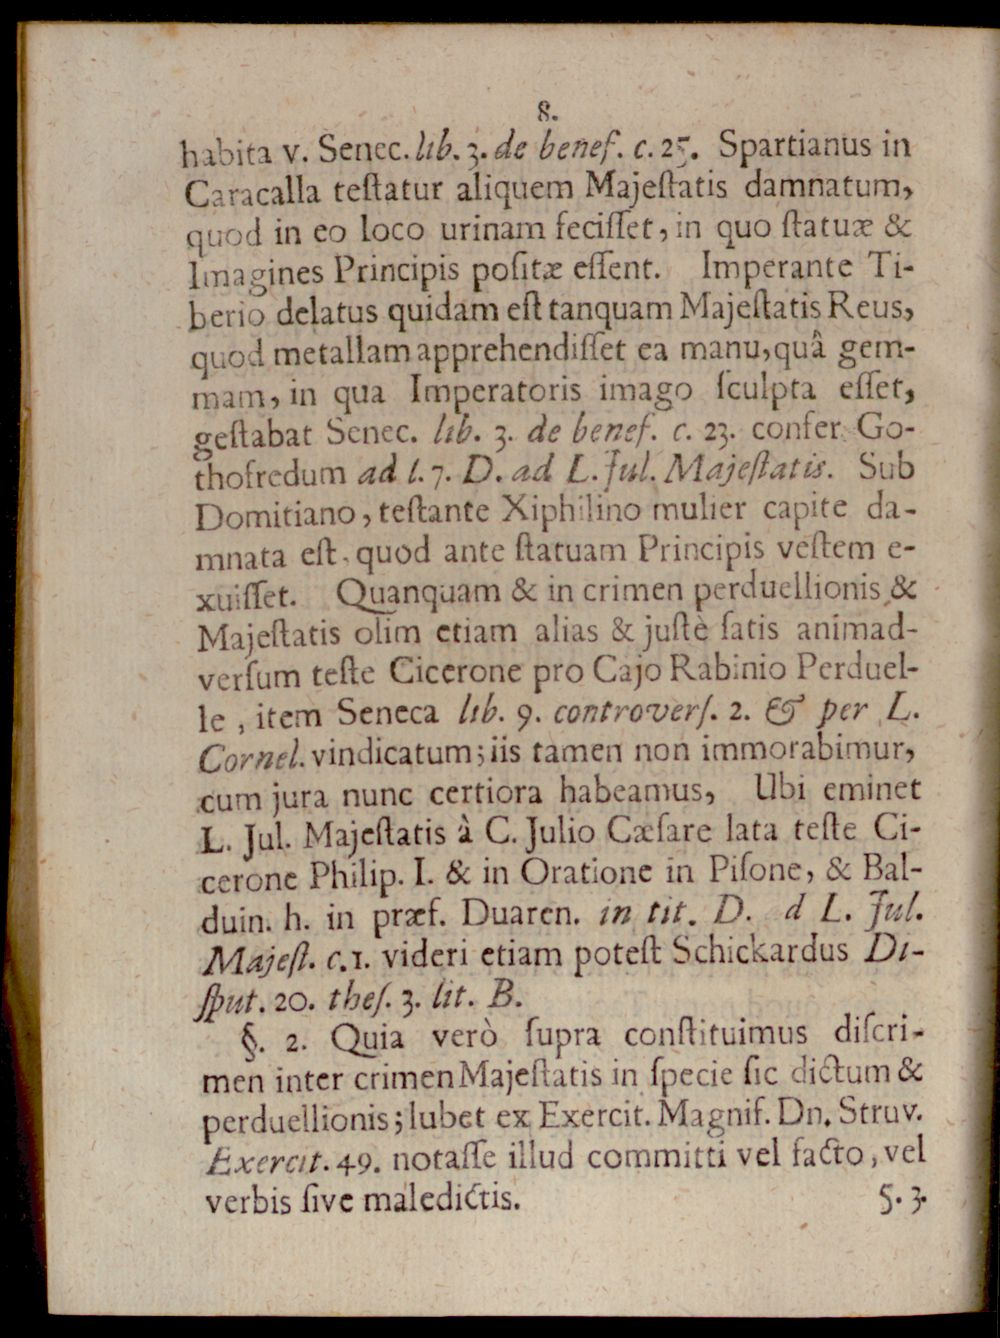 8.
habita v. Senec. lib. 3. de benef. c. 25. Spartianus in
Caracalla teſtatur aliquem Majeſtatis damnatum,
quod in eo loco urinam feciſſet, in quo ſtatuæ &
Imagines Principis poſitæ eſſent. Imperante Ti-
berio delatus quidam eſt tanquam Majeſtatis Reus,
quod metallam apprehendiſſet ea manu, quâ gem-
mam, in qua Imperatoris imago ſculpta eſſet,
geſtabat Senec. lib. 3. de benef. c. 23. confer Go-
thofredum ad l. 7. D. ad L. Jul. Majeſtatis. Sub
Domitiano, teſtante Xiphilino mulier capite da-
mnata eſt, quod ante ſtatuam Principis veſtem e-
xuiſſet. Quanquam & in crimen perduellionis &
Majeſtatis olim etiam alias & juſtè ſatis animad-
verſum teſte Cicerone pro Cajo Rabinio Perduel-
le, item Seneca lib. 9. controverſ. 2. & per L.
Cornel. vindicatum; iis tamen non immorabimur,
cum jura nunc certiora habeamus, Ubi eminet
L. Jul. Majeſtatis à C. Julio Cæſare lata teſte Ci-
cerone Philip. I. & in Oratione in Piſone, & Bal-
duin. h. in præf. Duaren. in tit. D. d L. Jul.
Majeſt. c. 1. videri etiam poteſt Schickardus Di-
ſput. 20. theſ. 3. lit. B.
§. 2. Quia verò ſupra conſtituimus diſcri-
men inter crimen Majeſtatis in ſpecie ſic dictum &
perduellionis; lubet ex Exercit. Magnif. Dn. Struv.
Exercit. 49. notaſſe illud committi vel facto, vel
verbis ſive maledictis.
§. 3.